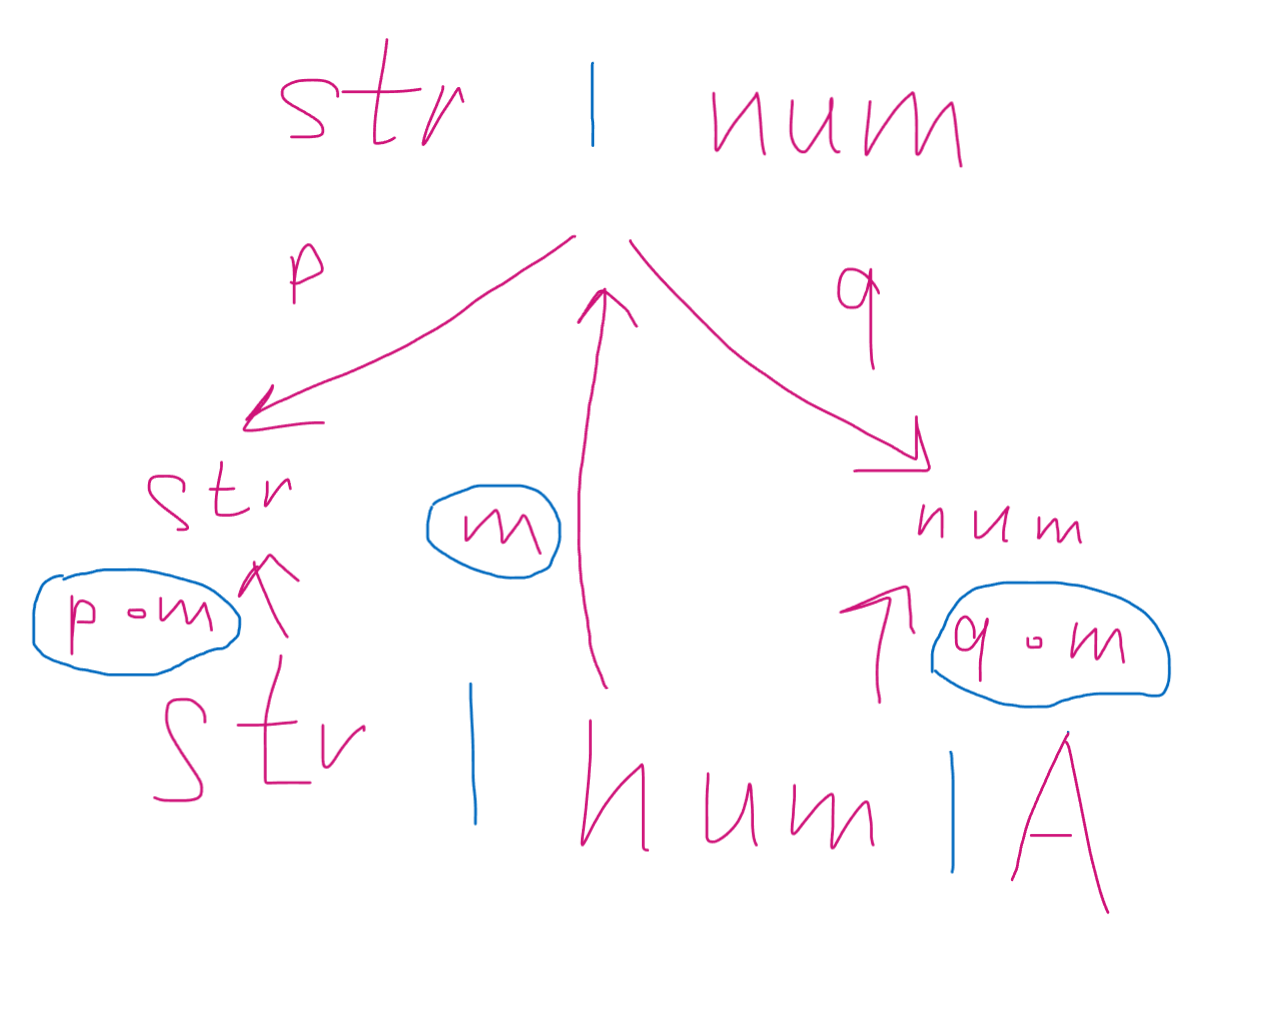 str | num
p q
str m num
p ∘ m q ∘ m
str | num | A